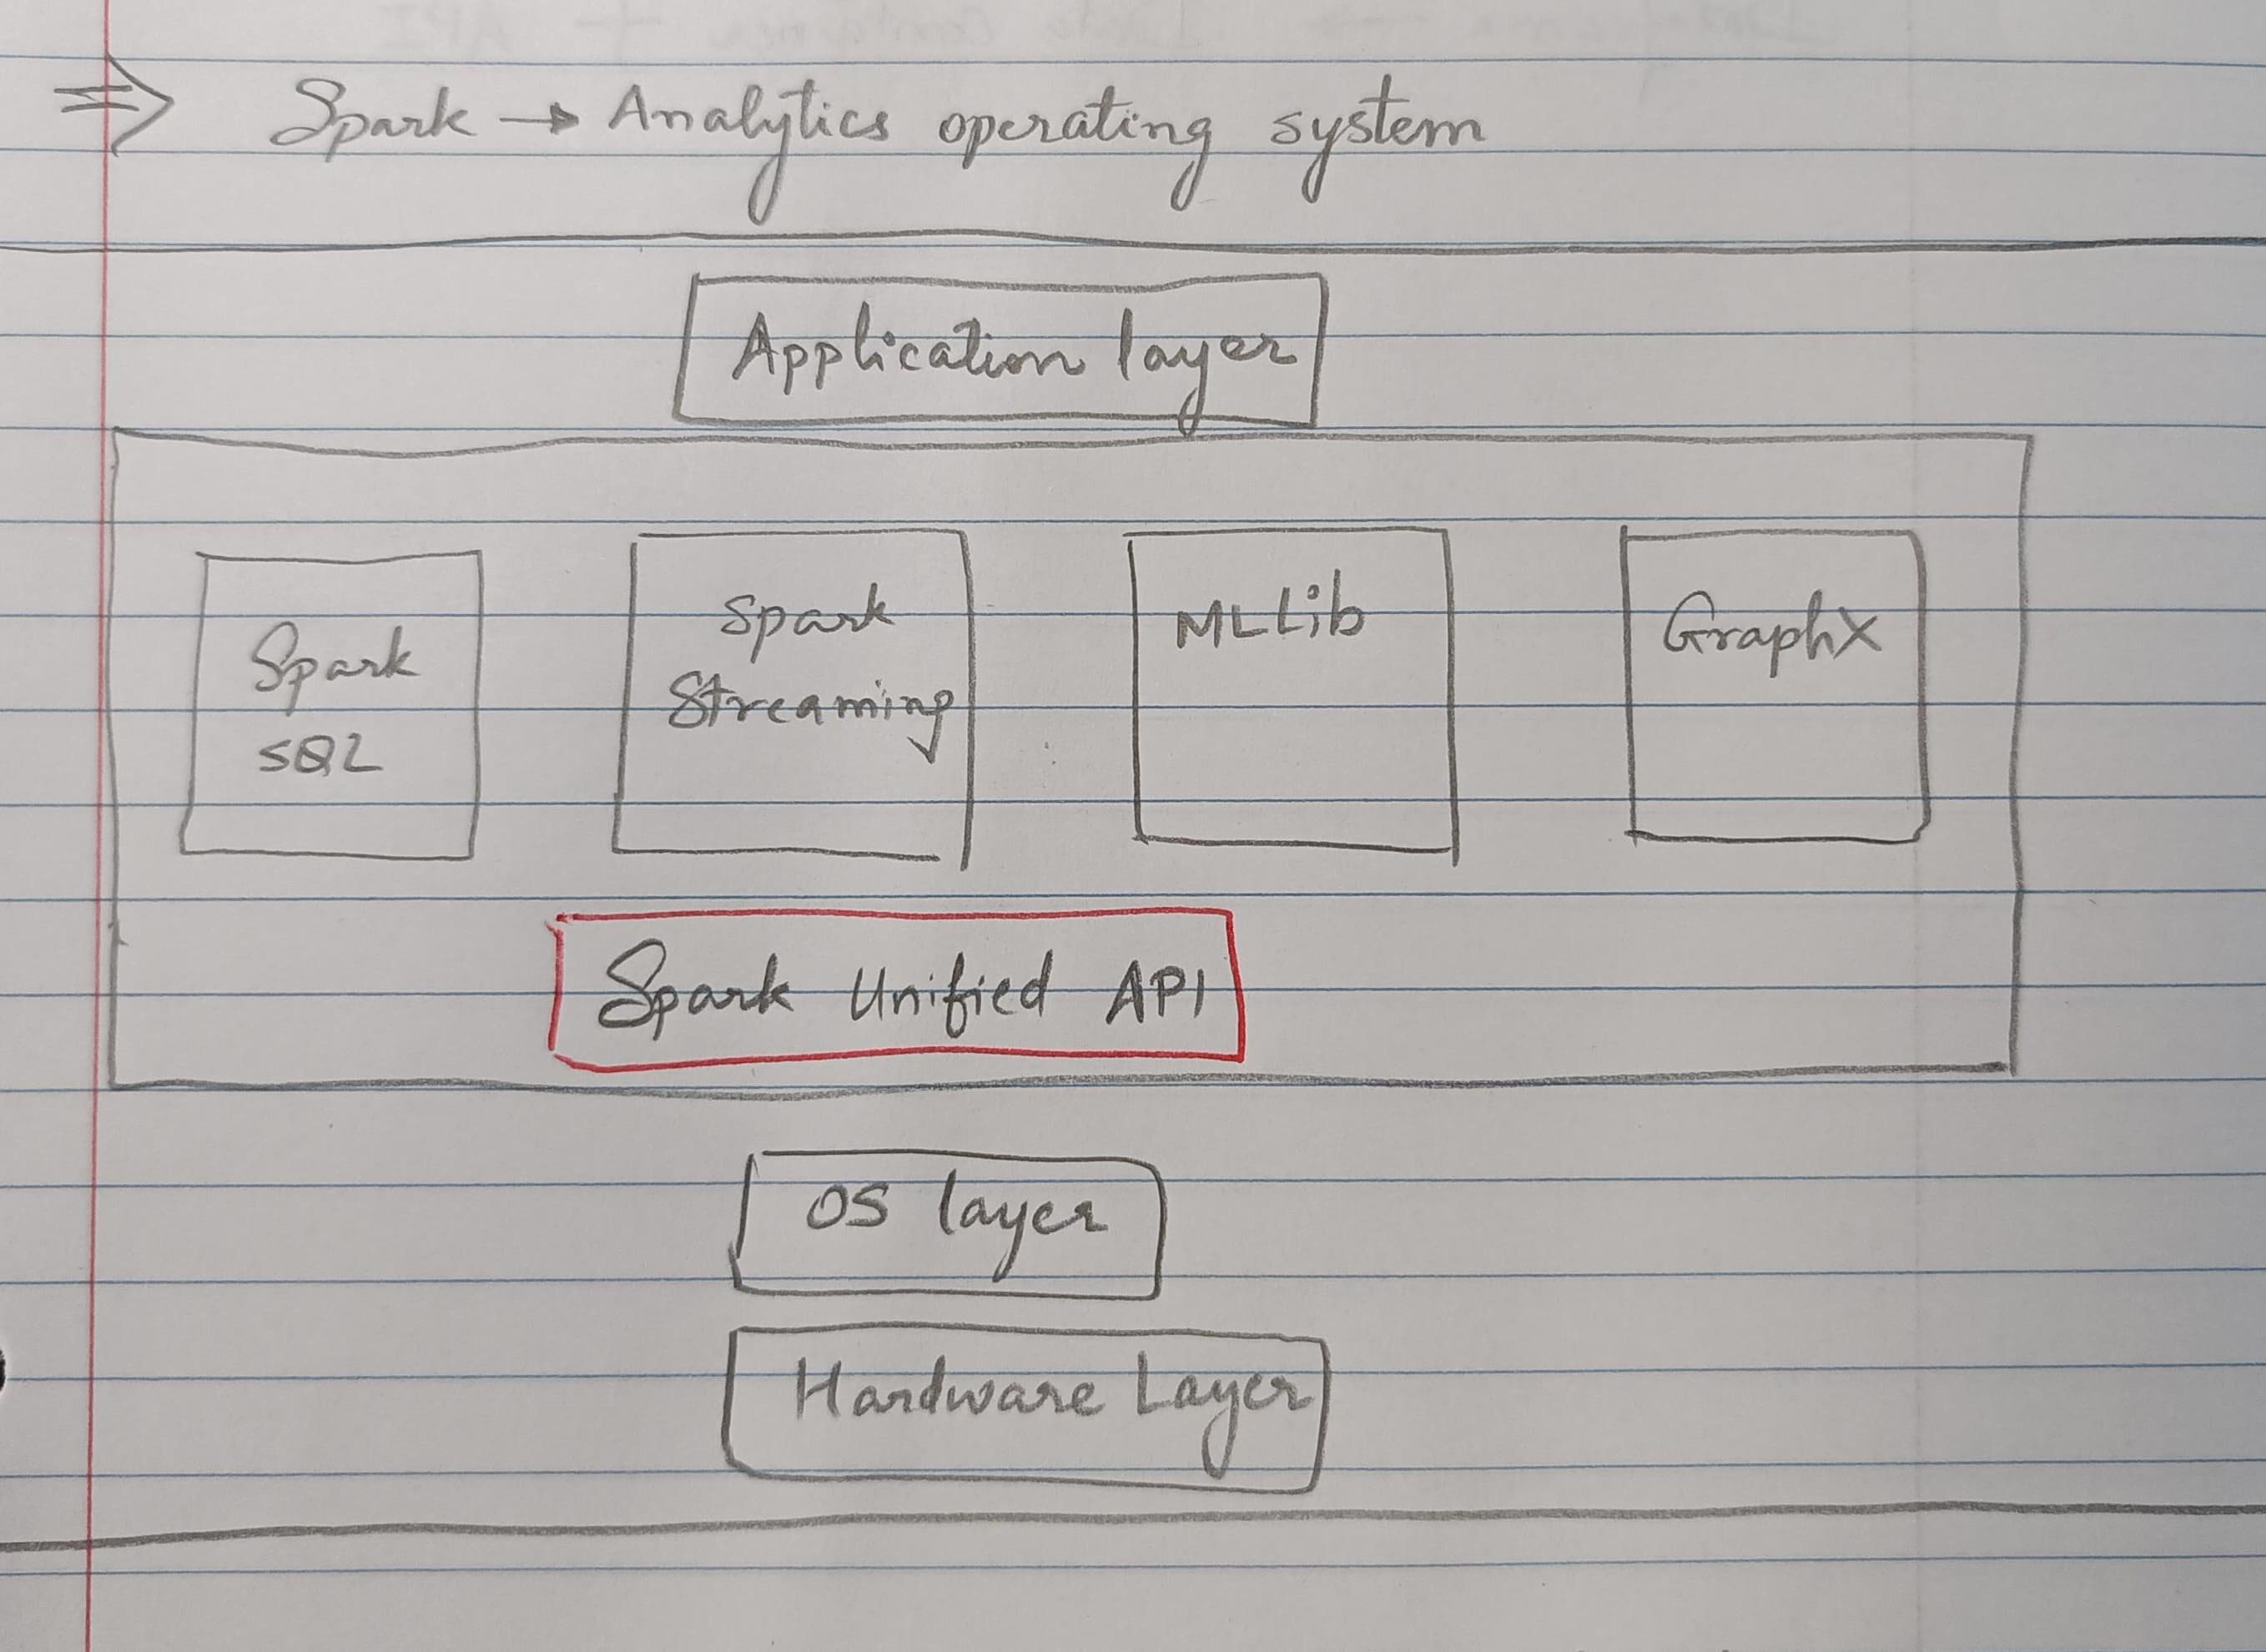 ⇒ Spark → Analytics operating system
Application layer
Spark
SQL
Spark
Streaming
MLLib
GraphX
Spark Unified API
OS layer
Hardware Layer